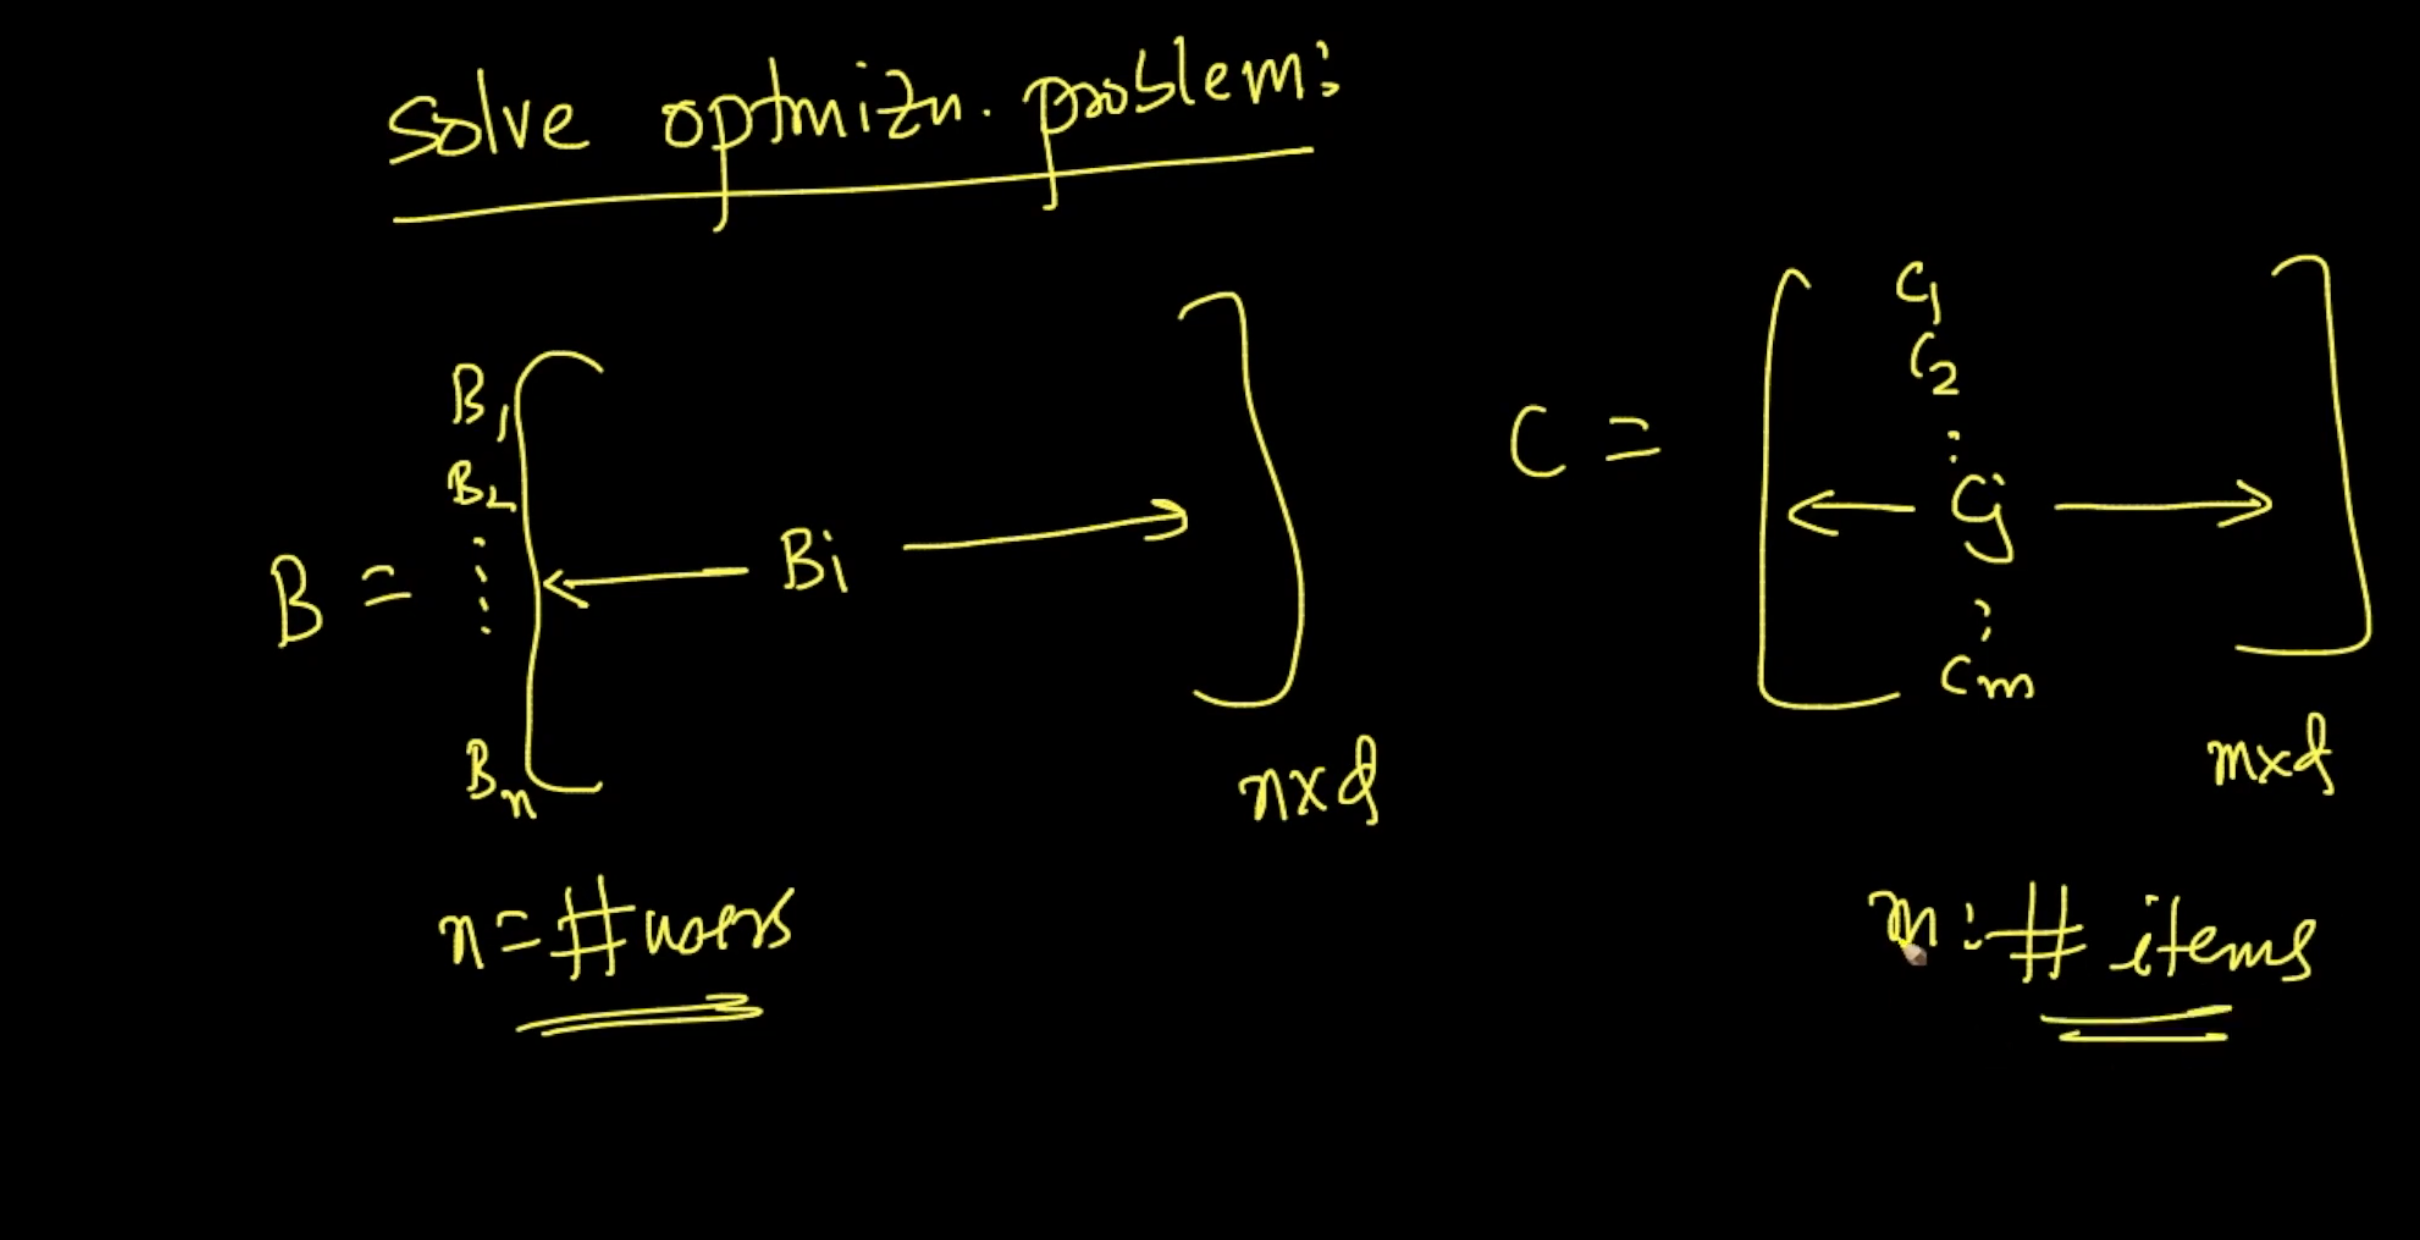 solve optmizn. problem:
B =
B1
B2
⋮
Bn
← Bi →
nxd
n = # users
C =
C1
C2
:
← Cj →
:
Cm
mxd
m: # items